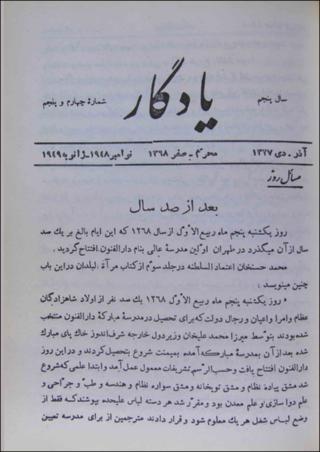 سال پنجم
یادگار
شمارهٔ چهارم و پنجم
آذر - دی ۱۳۲۷
محرم - صفر ۱۳۶۸
نوامبر ۱۹۴۸ - ژانویه ۱۹۴۹
مسائل روز
بعد از صد سال
روز یکشنبه پنجم ماه ربیع الاوّل از سال ۱۲۶۸ که این ایام بالغ بر یک صد
سال از آن میگذرد در طهران اوّلین مدرسهٔ عالی بنام دارالفنون افتتاح گردید .
محمد حسنخان اعتماد السلطنه در جلد سوّم از کتاب مرآة البلدان در این باب
چنین مینویسد :
« روز یکشنبه پنجم ماه ربیع الاوّل ۱۲۶۸ یک صد نفر از اولاد شاهزادگان
عظام و امرا و اعیان و رجال دولت که برای تحصیل در مدرسهٔ مبارکهٔ دارالفنون منتخب
شده بودند بتوسط میرزا محمد علیخان وزیر دول خارجه شرف اندوز خاک پای مبارک
شده بعد از آن بمدرسهٔ مبارکه آمده بمیمنت شروع بتحصیل کردند و در این روز
دارالفنون افتتاح یافت و حسب الرسم تشریفات معمول عمل آمد و ابتدا علمی که شروع
شد مشق پیاده نظام و مشق توپخانه و مشق سواره نظام و هندسه و طب و جراحی و
علم دوا سازی و علم معدن بود و مقرّر شد هر دسته لباس علیحده بپوشند که فقط از
وضع لباس شغل هر یک معلوم شود و قرار دادند مترجمین از برای مدرسه تعیین